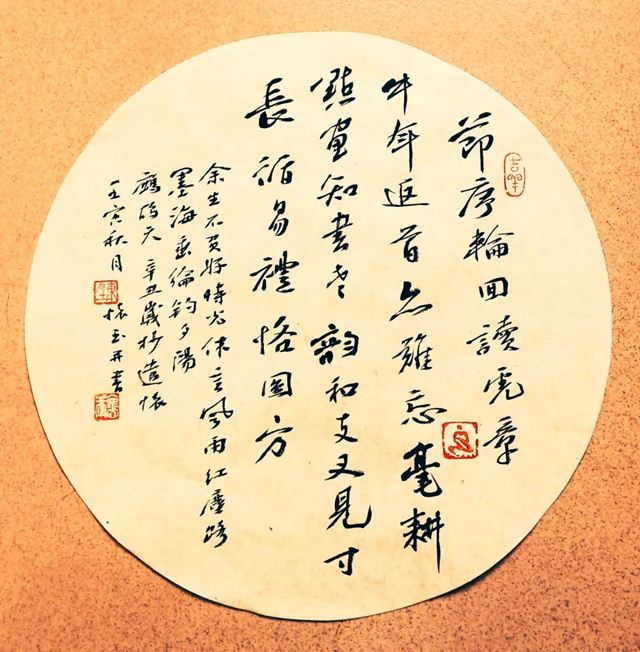 節序輪回讀虎章
牛年返首亦難忘毫耕
點畫知書老韻和支又見寸
長循易禮恪圓方
余生不負好時光休言風雨紅塵路
墨海垂綸釣夕陽
鷓鴣天 辛丑歲杪遣懷
壬寅秋月 懷玉并書